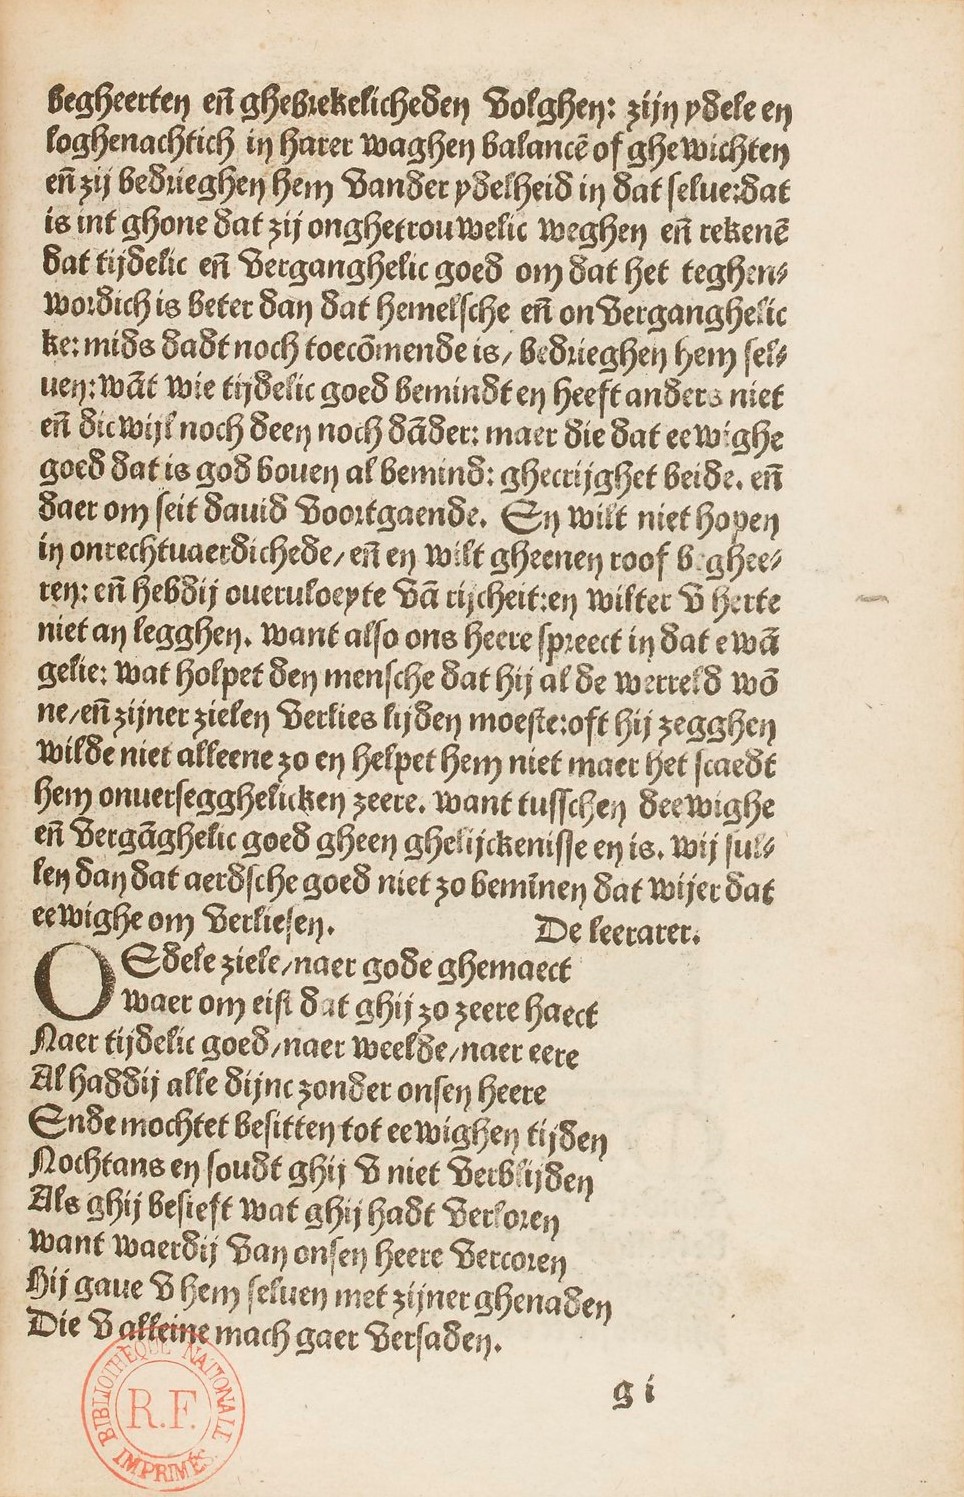 begheerten en̄ ghebrekelicheden volghen: zijn ydele en
loghenachtich in harer waghen balancē of ghewichten
en̄ zij bedrieghen hem vander ydelheid in dat selue: dat
is int ghone dat zij onghetrouwelic weghen en̄ rekenē
dat tijdelic en̄ verganghelic goed om dat het teghen⸗
wordich is beter dan dat hemelsche en̄ onverganghelic
ke: mids dadt noch toecōmende is/ bedrieghen hem sel⸗
uen: wāt wie tijdelic goed bemindt en heeft anders niet
en̄ dicwijl noch deen noch dāder: maer die dat eewighe
goed dat is god bouen al bemind: ghecrijghet beide. en̄
daer om seit dauid voortgaende. En wilt niet hopen
in onrechtuaerdichede/ en̄ en wilt gheenen roof beghee⸗
ren: en̄ hebdij oueruloeyte vā rijcheit: en wilter v herte
niet an legghen. want also ons heere spreect in dat ewā
gelie: wat holpet den mensche dat hij al de werreld wō
ne/ en̄ zijner zielen verlies lijden moeste: oft hij zegghen
wilde niet alleene zo en helpet hem niet maer het scaedt
hem onuersegghelicken zeere. want tusschen deewighe
en̄ vergāghelic goed gheen ghelijckenisse en is. wij sul⸗
len dan dat aerdsche goed niet zo bemīnen dat wijer dat
eewighe om verliesen. De leerarer.
O Edele ziele/ naer gode ghemaect
waer om eist dat ghij zo zeere haect
Naer tijdelic goed/ naer weelde/ naer eere
Al haddij alle dijnc zonder onsen heere
Ende mochtet besitten tot eewighen tijden
Nochtans en soudt ghij v niet verblijden
Als ghij besieft wat ghij hadt verloren
want waerdij van onsen heere vercoren
Hij gaue v hem seluen met zijner ghenaden
Die v alleine mach gaer versaden.
g i
BIBLIOTHÈQUE NATIONALE
R.F.
IMPRIMÉS